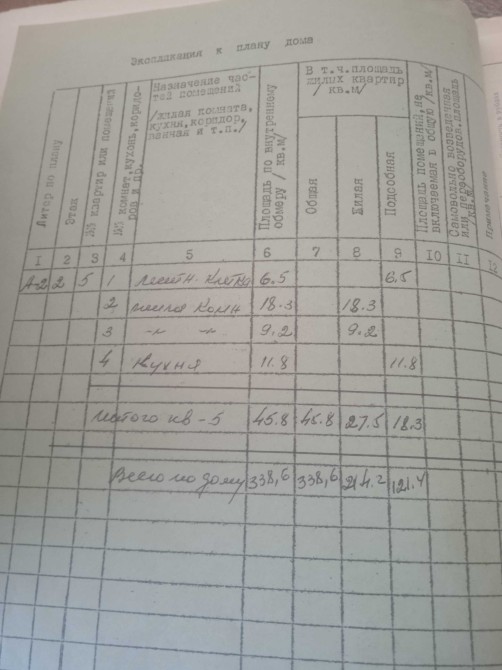 Экспликация к плану дома
Литер по плану
Этаж
№№ квартир или помещений
№№ комнат, кухонь, коридоров и пр.
Назначение час-
тей помещений
/жилая комната,
кухня, коридор,
ванная и т.п./
Площадь по внутреннему
обмеру / кв.м/
В т.ч. площадь
жилых квартир
/ кв.м/
Общая
Жилая
Подсобная
Площадь помещений, не
включаемая в общую /кв.м/
Самовольно возведенная
или переоборудов. площадь
/кв.м/
Примечание
1 2 3 4 5 6 7 8 9 10 11 12
А-2 2 5 1 лестн. клетка 6.5 6.5
2 жилая комн 18.3 18.3
3 -"- -"- 9.2 9.2
4 кухня 11.8 11.8
Итого кв-5 45.8 45.8 27.5 18.3
Всего по дому 338,6 338,6 214.2 121.4